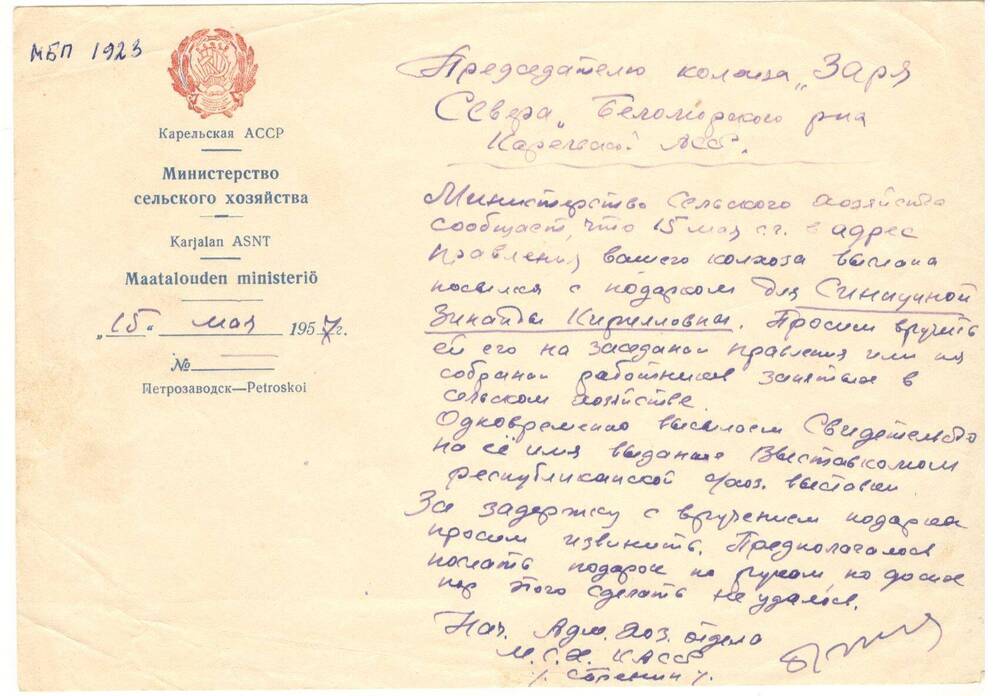 МБП 1923
Карельская АССР
Министерство
сельского хозяйства
Karjalan ASNT
Maatalouden ministeriö
„15“ мая 1957г.
№
Петрозаводск—Petroskoi
Председателю колхоза „Заря
Севера„ Беломорского р-на
Карельской АССР.
Министерство Сельского хозяйства
сообщает, что 15 мая с.г. в адрес
правления вашего колхоза выслана
посылка с подарком для Синицыной
Зинаиды Кирилловны. Просим вручить
ей его на заседании правления или на
собрании работников занятых в
сельском хозяйстве.
Одновременно высылаем Свидетельство
на её имя выданное Выставкомом
республиканской с/хоз. выставки
За задержку с вручением подарка
просим извинить. Предполагалось
послать подарок по рукам, но до сих
пор этого сделать не удалось.
Нач. Адм. Хоз. отдела
М.С.Х. КАССР